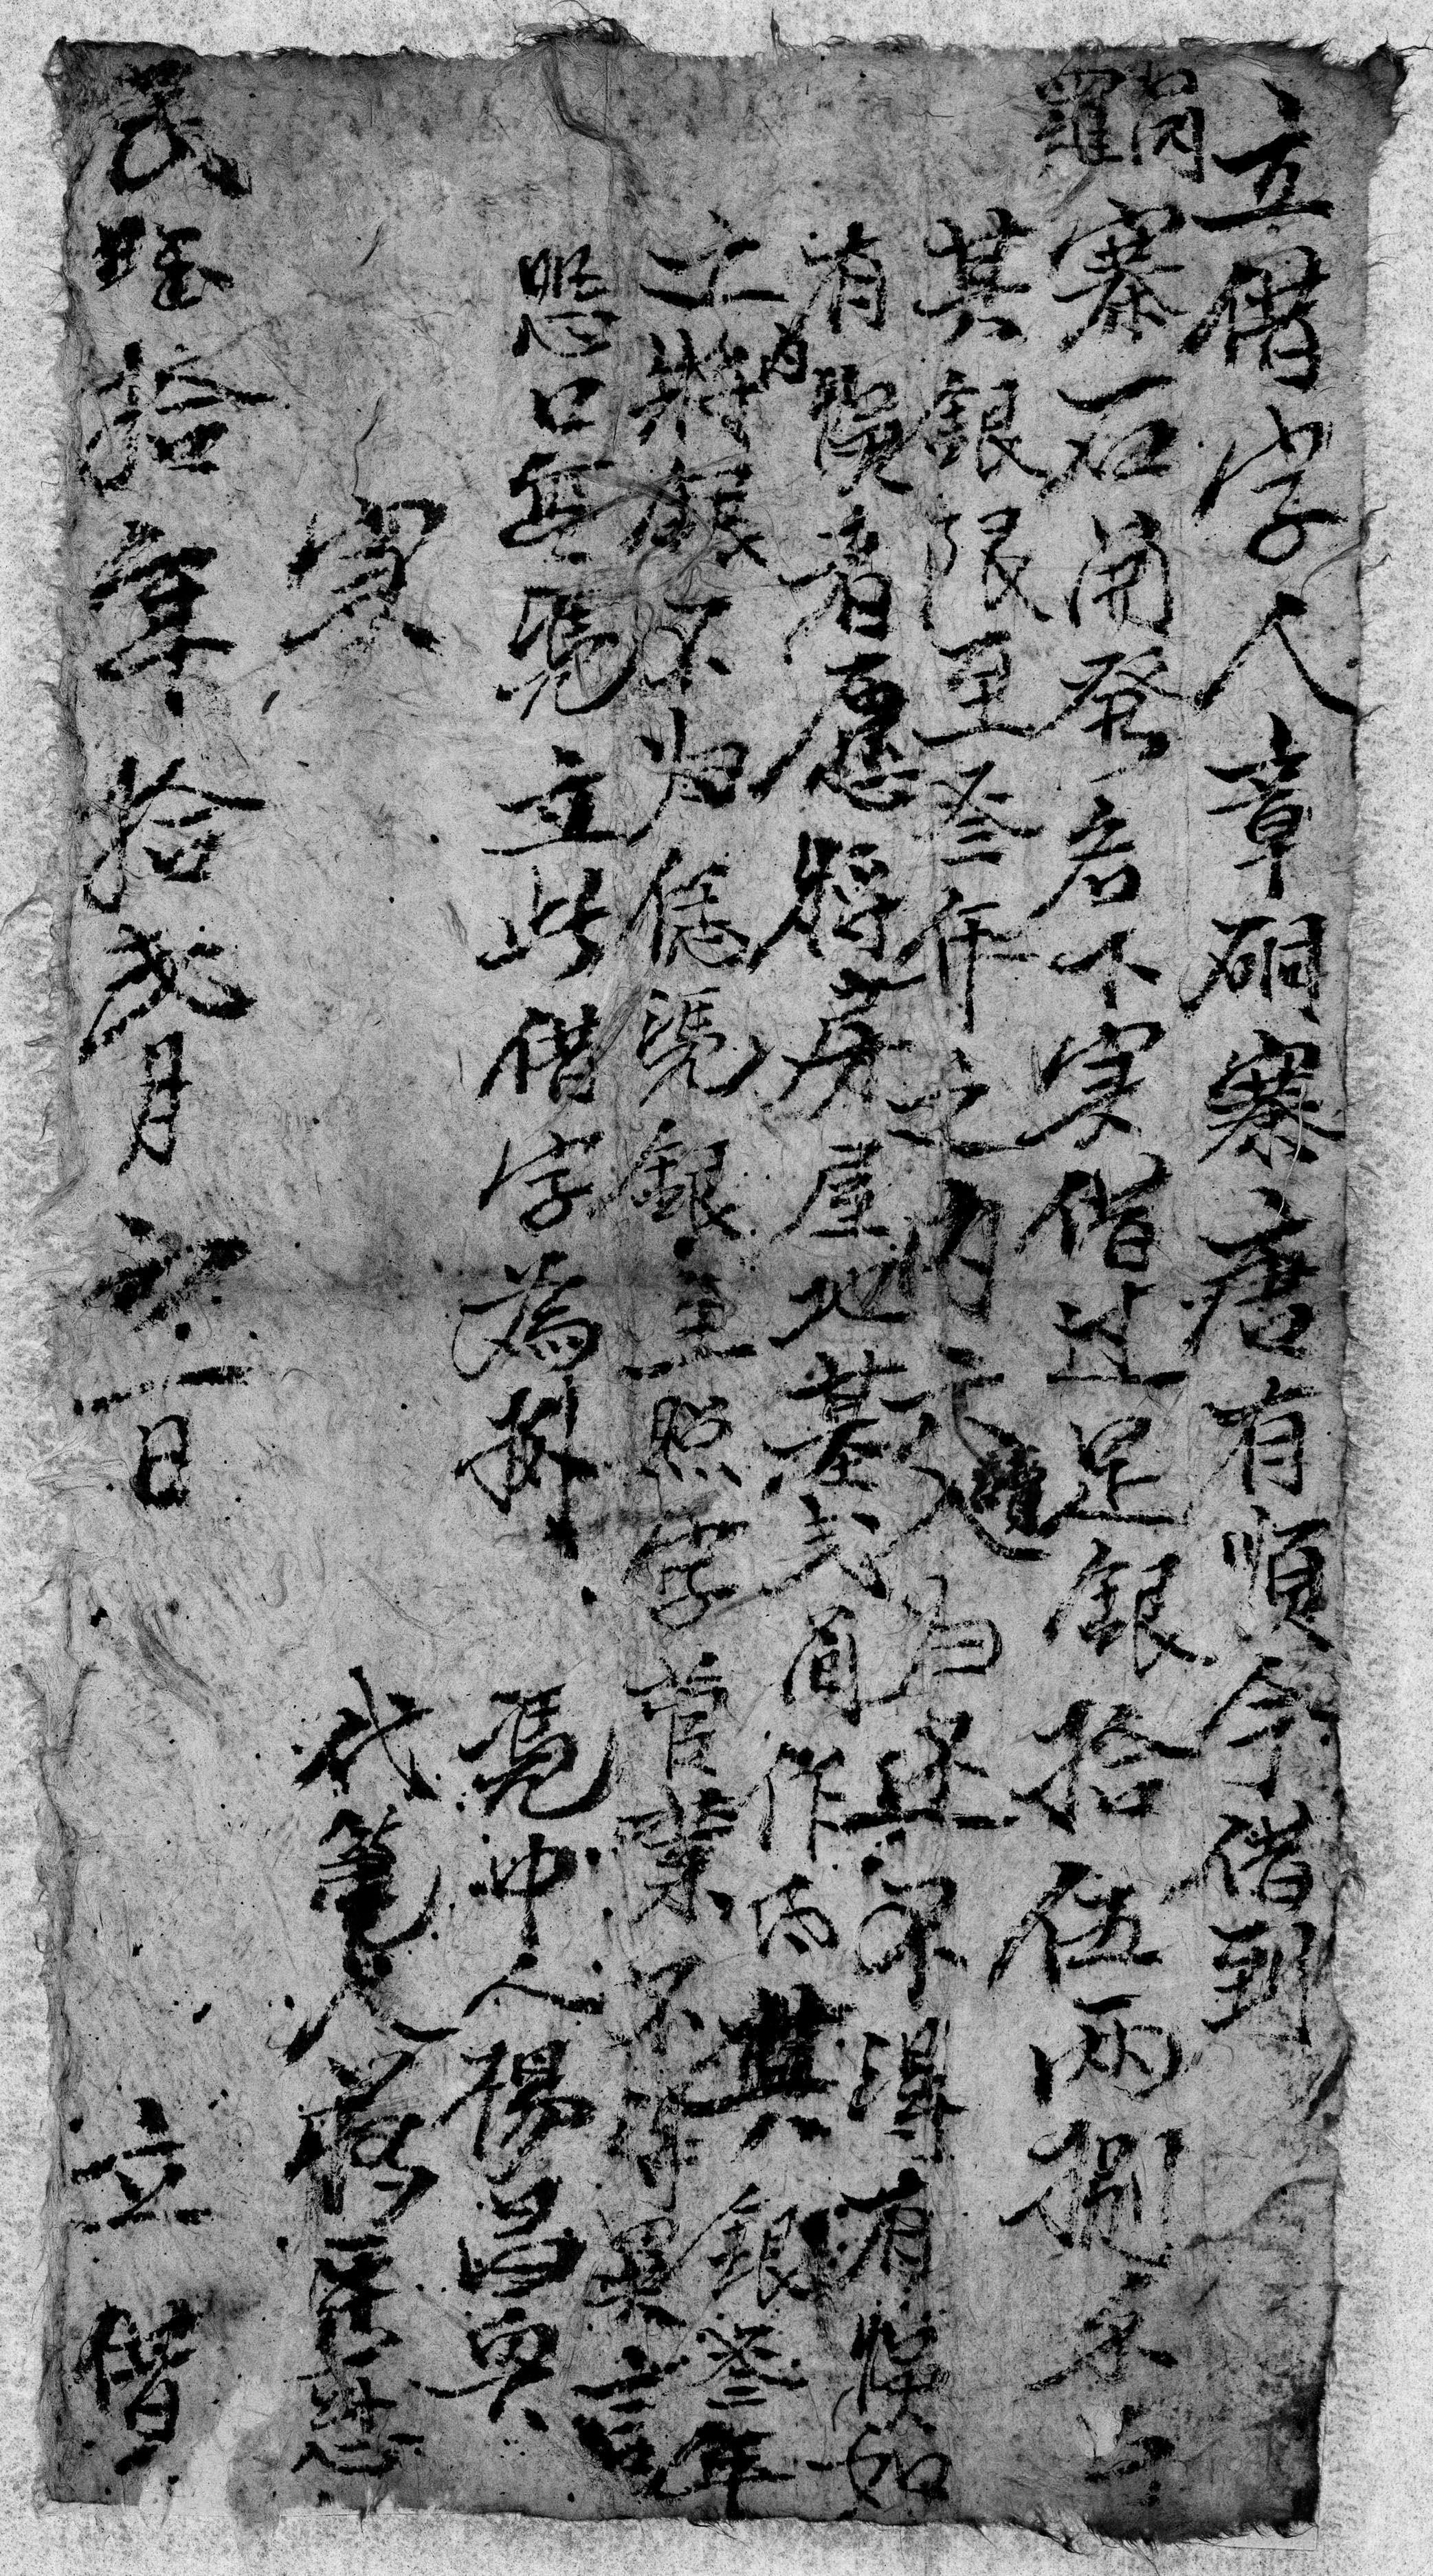 立借字人章硐寨唐有順今借到
岗羅寨石開發名下实借過足銀拾伍兩捌
其銀限至叁年之内天還清為並不得有悮如
有悮者愿將房屋地基弍間作當其銀叁年
之内將銀不归還憑銀主照字管業不得異言
恐口無憑立此借字為據
憑中人楊昌興
实
代筆人
民國拾年拾弍月初一日 立借